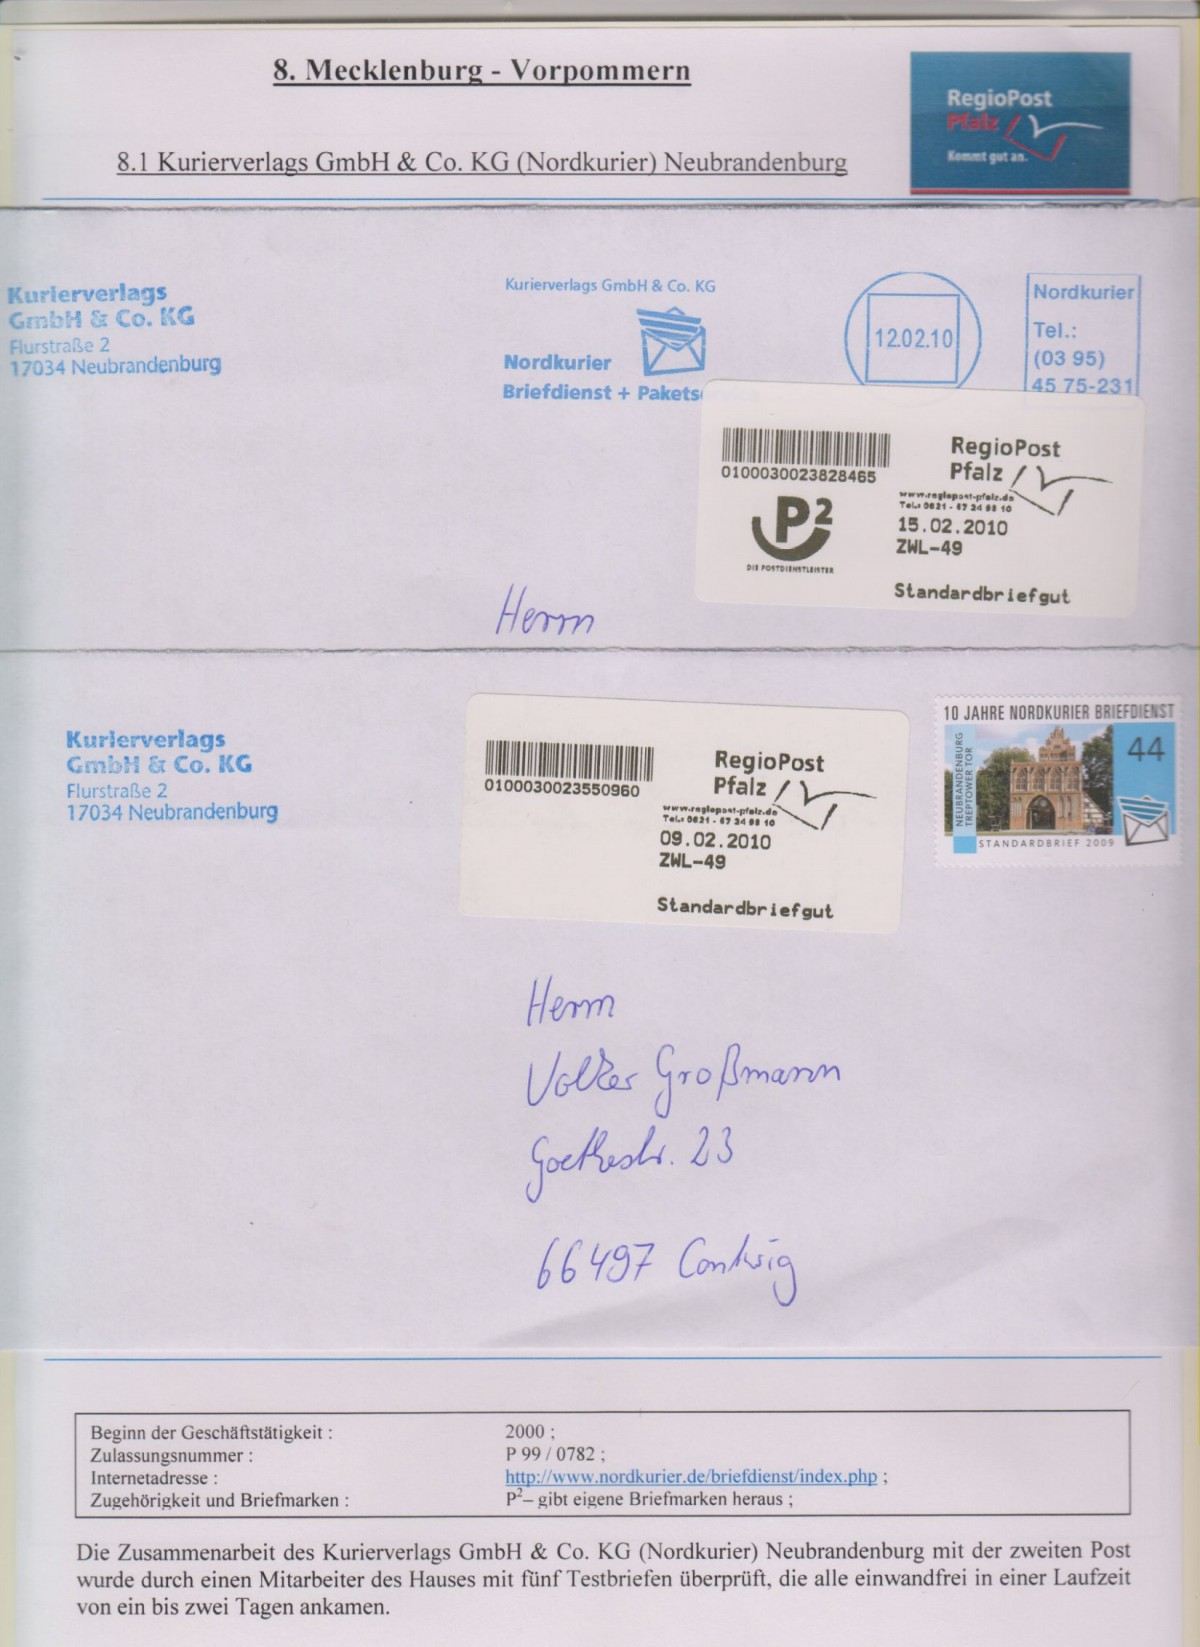 8. Mecklenburg - Vorpommern
RegioPost
Pfalz
Kommt gut an.
8.1 Kurierverlags GmbH & Co. KG (Nordkurier) Neubrandenburg
Kurierverlags
GmbH & Co. KG
Flurstraße 2
17034 Neubrandenburg
Kurierverlags GmbH & Co. KG
Nordkurier
Briefdienst + Pakets
12.02.10
Nordkurier
Tel.:
(03 95)
45 75-231
0100030023828465
P2
DIE POSTDIENSTLEISTER
RegioPost
Pfalz
www.regiopost-pfalz.de
Tel.: 0621 - 67 24 98 10
15.02.2010
ZWL-49
Standardbriefgut
Herrn
Kurierverlags
GmbH & Co. KG
Flurstraße 2
17034 Neubrandenburg
0100030023550960
RegioPost
Pfalz
www.regiopost-pfalz.de
Tel.: 0621 - 67 24 98 10
09.02.2010
ZWL-49
Standardbriefgut
10 JAHRE NORDKURIER BRIEFDIENST
NEUBRANDENBURG
TREPTOWER TOR
44
STANDARDBRIEF 2009
Herrn
Volker Großmann
Goethestr. 23
66497 Contwig
Beginn der Geschäftstätigkeit : 2000 ;
Zulassungsnummer : P 99 / 0782 ;
Internetadresse : http://www.nordkurier.de/briefdienst/index.php ;
Zugehörigkeit und Briefmarken : P2– gibt eigene Briefmarken heraus ;
Die Zusammenarbeit des Kurierverlags GmbH & Co. KG (Nordkurier) Neubrandenburg mit der zweiten Post
wurde durch einen Mitarbeiter des Hauses mit fünf Testbriefen überprüft, die alle einwandfrei in einer Laufzeit
von ein bis zwei Tagen ankamen.